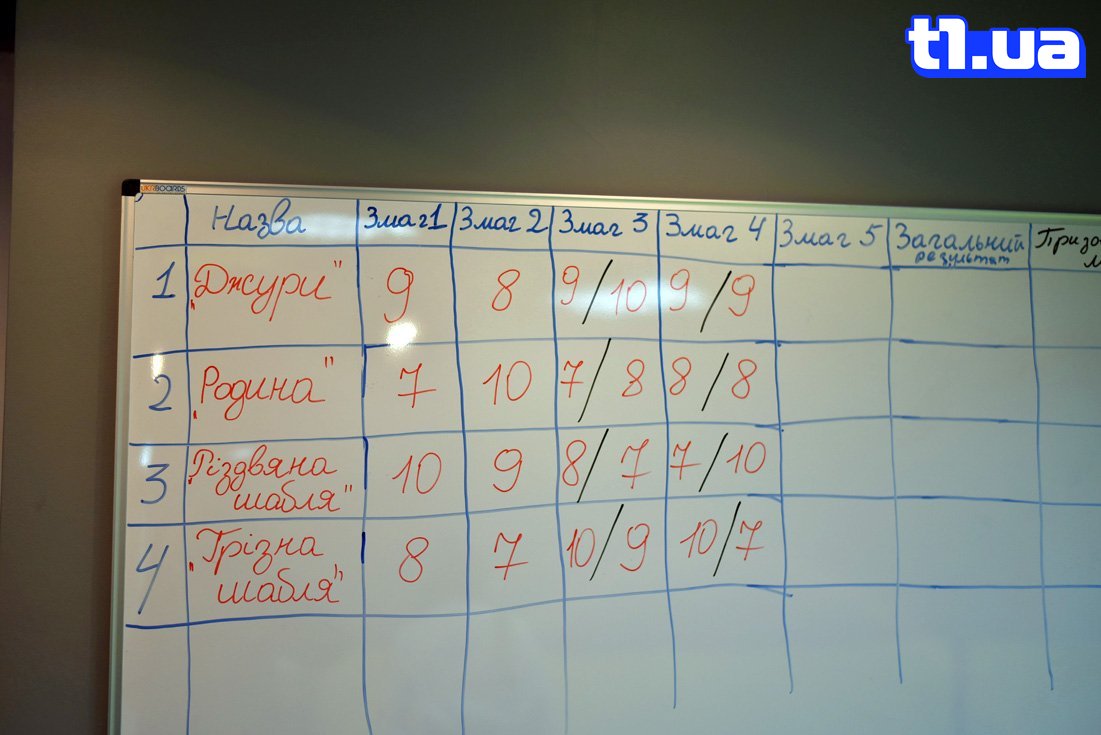 t1.ua
UKRBOARDS
Назва Змаг1 Змаг 2 Змаг 3 Змаг 4 Змаг 5 Загальний результат
1 „Джури" 9 8 9/10 9/9
2 „Родина" 7 10 7/8 8/8
3 „Різдвяна 10 9 8/7 7/10
шабля"
4 „Грізна 8 7 10/9 10/7
шабля"